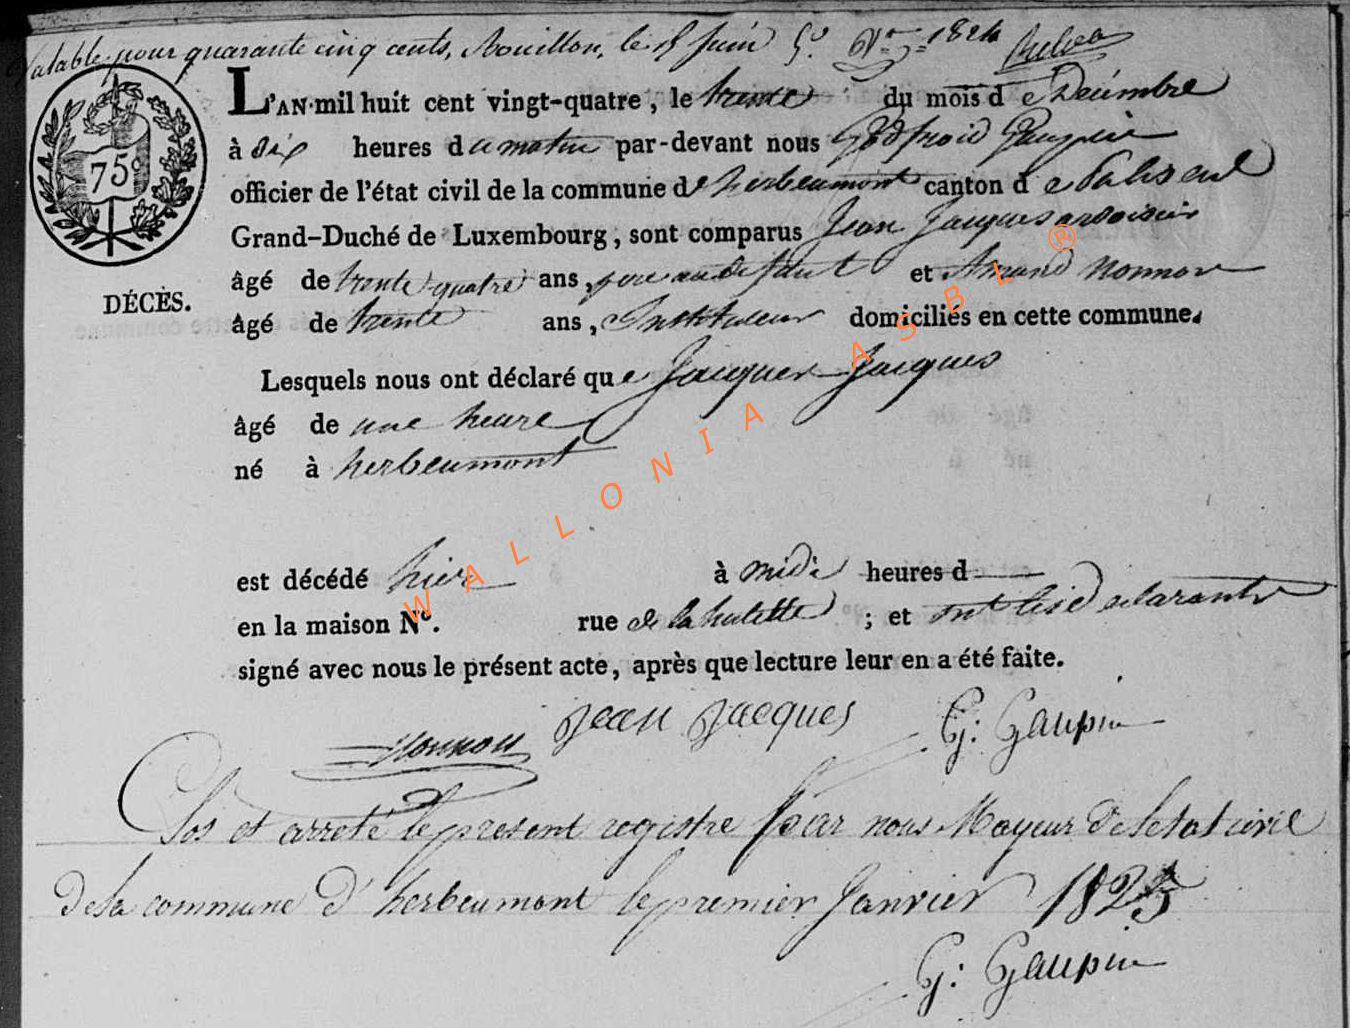 Valable pour quarante cinq cents, Bouillon, le 15 juin 1824
75c
DÉCÈS.
L'AN mil huit cent vingt-quatre, le trente du mois de Décembre
à dix heures du matin par-devant nous Godfroid Gaupin
officier de l'état civil de la commune de herbeumont canton de Paliseul
Grand-Duché de Luxembourg, sont comparus Jean Jacques ardoisier
âgé de trente quatre ans, pere au défaut et Amand Nonnon
âgé de trente ans, Instituteur domiciliés en cette commune.
Lesquels nous ont déclaré que Jacques Jacques
âgé de une heure
né à herbeumont
est décédé hier à midi heures d
en la maison N°. rue de la hulette ; et ont les déclarants
signé avec nous le présent acte, après que lecture leur en a été faite.
Nonnon jean jacques G: Gaupin
Clos et arreté le present registre par nous Mayeur de l'etat civil
de la commune d'herbeumont le premier Janvier 1825
G: Gaupin
WALLONIA ASBL ®